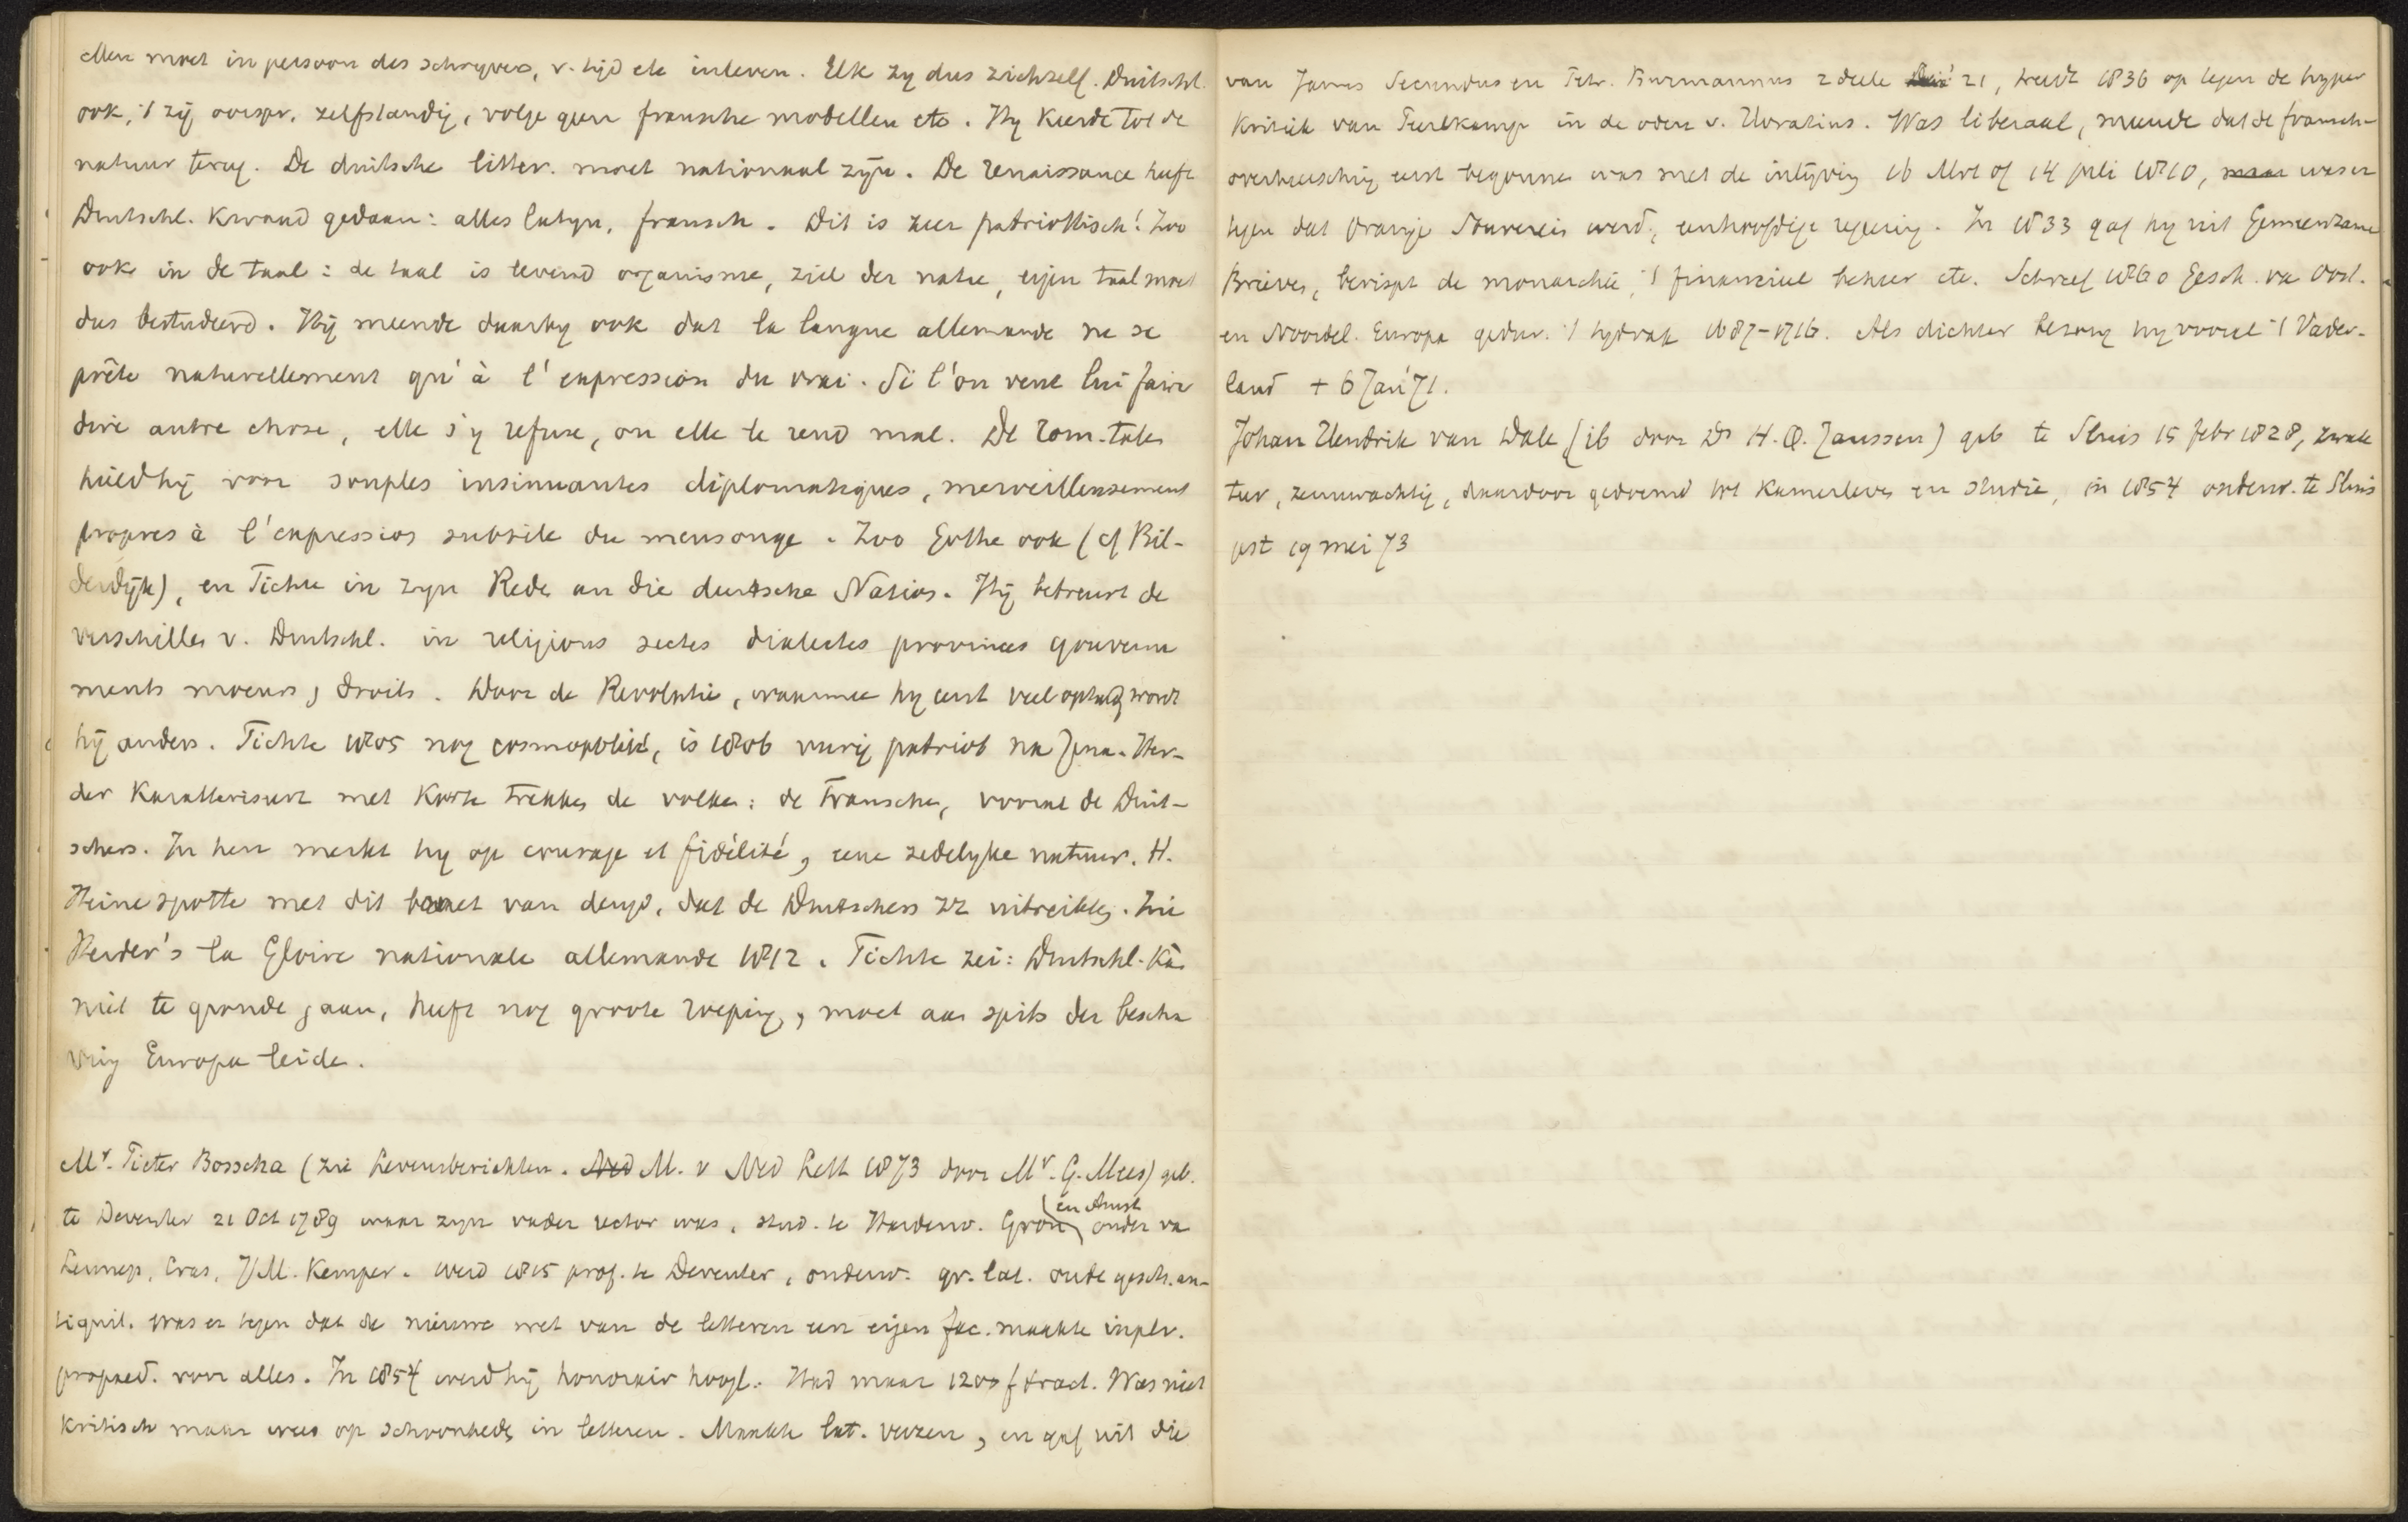 Men moet in persoon des schryvers, v. tijd etc inleven. Elk zy dus zichzelf. Duitschl.
ook, 't zij oorspr. zelfstandig, volge geen fransche modellen etc. Hy keerde tot de
natuur terug. De duitsche litter. moet nationaal zijn. De renaissance heeft
Duitschl. kwaad gedaan: alles latyn, fransch. Dit is zeer patriottisch! Zoo
ook in de taal: de taal is levend organisme, ziel der natie, eigen taal moet
dus bestudeerd. Hij meende daarby ook dat la langue allemande ne se
prête naturellement qu'à l'expression du vrai. Si l'on veut lui faire
dire autre chose, elle s'y refuse, ou elle le rend mal. De rom. talen
hield hij voor souples insinuantes diplomatiques, merveilleusement
propres à l'expression subtile du mensonge. Zoo Gothe ook (cf Bil-
derdijk), en Fichte in zyn Rede an die deutsche Nation. Hij betreurt de
verschillen v. Duitschl. in religions sectes dialectes provinces gouverne
ments moeurs, droits. Door de Revolutie, waarmee hy eerst veel ophad, wordt
hij anders. Fichte 1805 nog cosmopoliet, is 1806 vurig patriot na Jena. Her-
der karakteriseert met korte trekken de volken: de Franschen, vooral de Duit-
schers. In hen merkt hy op courage et fidélité, eene zedelyke natuur. H.
Heine spotte met dit van deugd, dat de Duitschers zz uitreikten. Zie
Herder's la Gloire nationale allemande 1812. Fichte zei: Duitschl. kan
niet te gronde gaan, heeft nog groote roeping, moet aan spits der bescha
ving Europa leiden.
Mr. Pieter Bosscha (zie Levensberichten. Ned M. v Ned Lett 1873 door Mr. G. Mees) geb.
te Deventer 21 Oct 1789 waar zyn vader rector was, stud. te Harderw. Gron (en Amst) onder va
Lennep, Cras, J.M. Kemper. werd 1815 prof. te Deventer, onderw. gr. lat. oude gesch. an-
tiquit. was er tegen dat de nieuwe wet van de letteren een eigen fac. maakte inplv.
propaed. voor alles. In 1854 werd hij honorair hoogl. Had maar 1200 f tract. Was niet
kritisch maar wees op schoonheden in letteren. Maakte lat. verzen, en gaf uit die
van Janus Secundus en Petr. Burmannus 2 deelen 21, treedt 1836 op tegen de hyper
kritiek van Peerlkamp in de oden v. Horatius. Was liberaal, meende dat de fransch-
overheersching eerst begonnen was met de inlijving 16 Mrt of 14 juli 1810, maar was er
tegen dat Oranje Souverein werd, eenhoofdige regeering. In 1833 gaf hy uit Gemeenzame
Brieven, berispt de monarchie, 't financieel beheer etc. Schreef 1860 Gesch. va Oostl.
en Noordel. Europa gedur. 't tydvak 1687-1716. Als dichter bezong hy vooral 't Vader-
land + 6 Jan 71.
Johan Hendrik van Dale (ib door Dr H.Q. Janssen) geb te Sluis 15 febr 1828, zwak
ter, zenuwachtig, daardoor gedoemd tot kamerleven en studie, in 1854 onderw. te Sluis
gest 19 mei 73